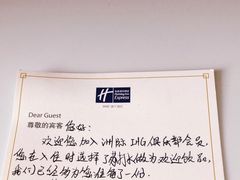 Holiday Inn
Express
Dear Guest
尊敬的宾客 您好:
欢迎您加入洲际IHG俱乐部会员,
您在入住时选择了 作为欢迎饮品,
我们已经为您准备了一份.